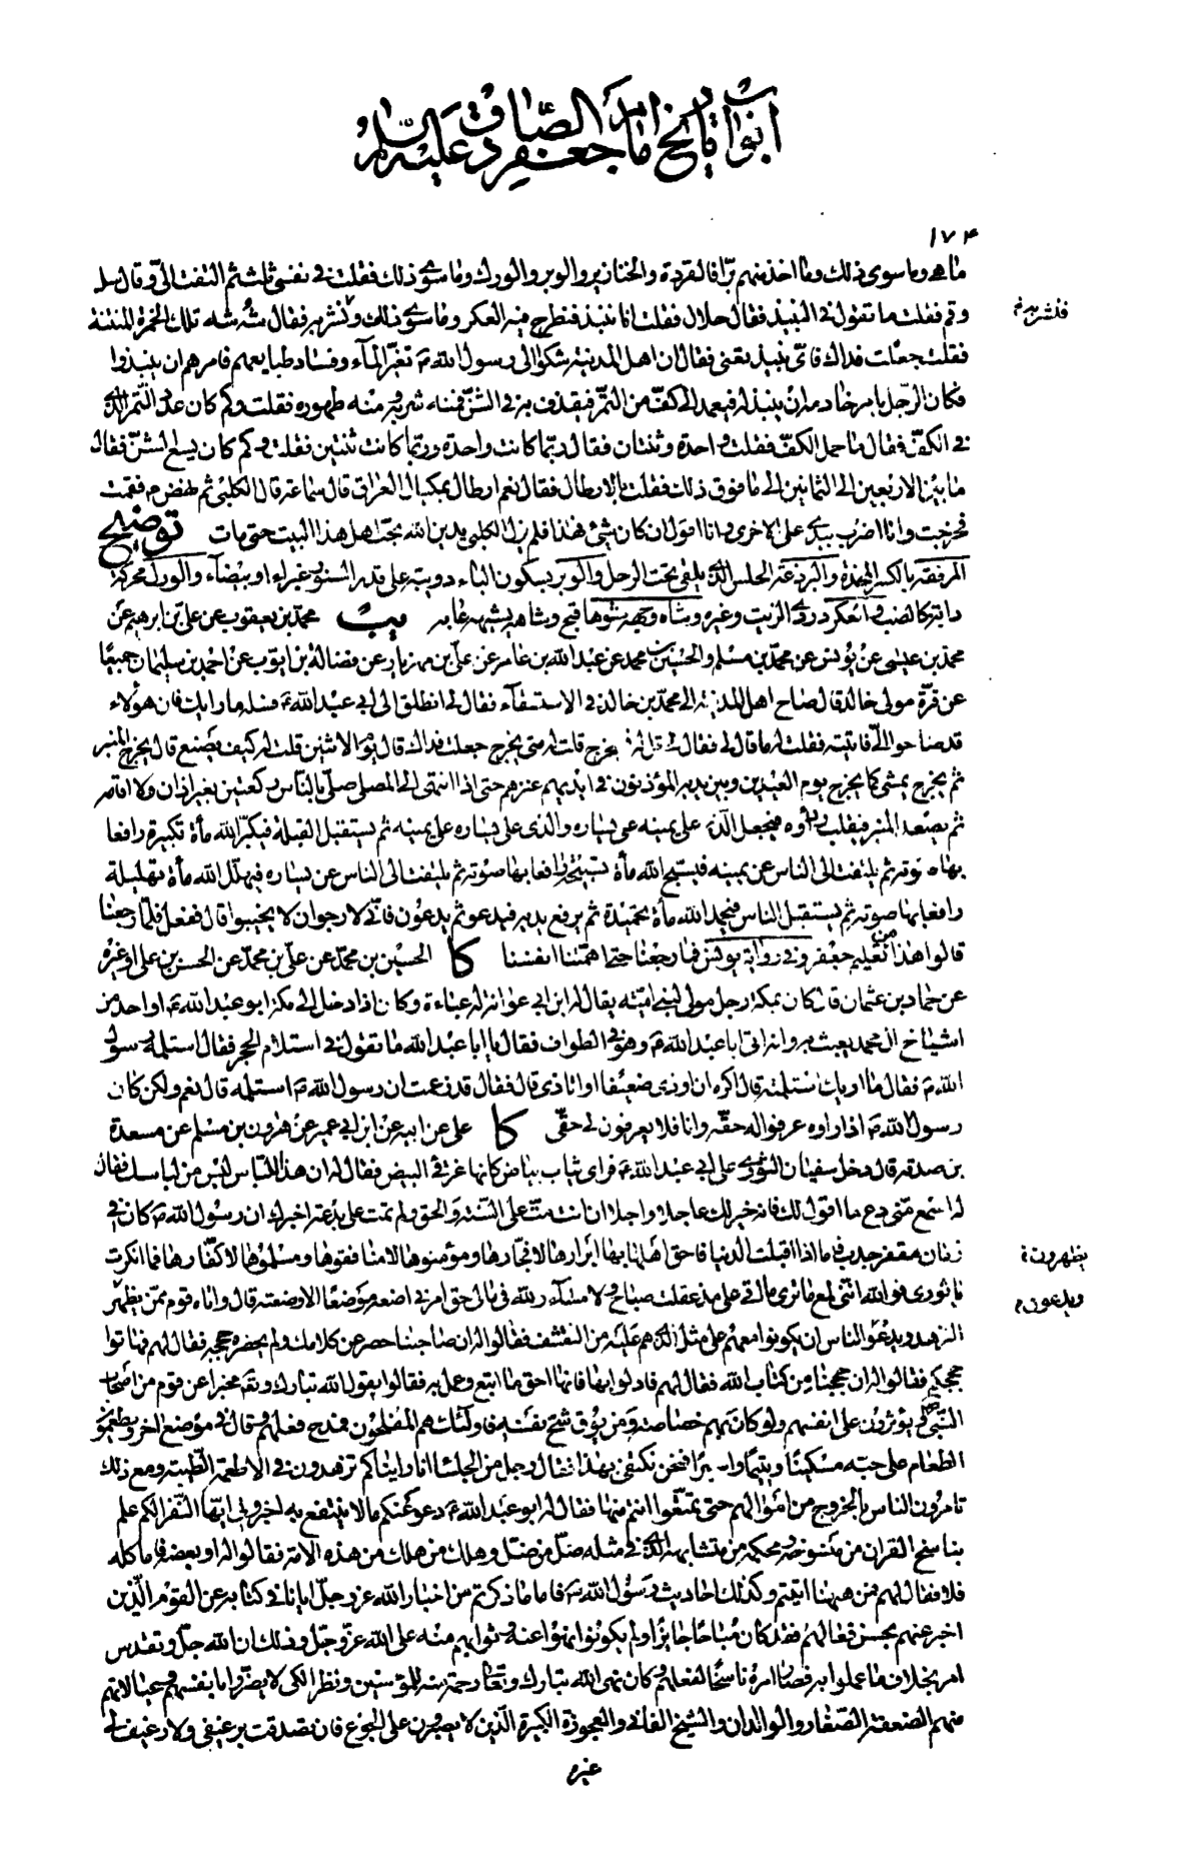 ابواب تاريخ الامام جعفر الصادق عليه السلام
١٧٤
ماهى وما سوى ذلك وما اخذ منهم برّا فالقردة والخنازير والوبر والورك وما سوى ذلك فقلت فى نفسى ثلث ثم التفت الىّ وقال سل
وقم فقلت ما تقول فى النبيذ فقال حلال فقلت انا ننبذ فنطرح فيه العكر وما سوى ذلك ونشربه فقال شه شه تلك الخمرة المنتنة
فلشربه
فقلت جعلت فداك فاى نبيذ تعنى فقال ان اهل المدينة شكوا الى رسول الله ص تغيّر المآء وفساد طبايعهم فامرهم ان ينبذوا
فكان الرّجل يامر خادمه ان ينبذ له فيعمد الى كفّ من التمر فيقذف به فى الشنّ فمنه شربه ومنه طهوره فقلت وكم كان عدد التمر الذى
فى الكفّ فقال ما حمل الكفّ فقلت واحدة وثنتان فقال ربّما كانت واحدة وربّما كانت ثنتين فقلت وكم كان يسع الشنّ فقال
ما بين الاربعين الى الثمانين الى ما فوق ذلك فقلت بالارطال فقال نعم ارطال بمكيال العراق قال سماعة قال الكلبى ثم نهض ع وقمت
فخرجت وانا اضرب بيدى على الاخرى وانا اقول ان كان شئ فهذا فلم يزل الكلبى يدين الله بحبّ اهل هذا البيت حتى مات توضيح
المرفقة بالكسر المخدة والبرذعة الحلس الذى يلقى تحت الرحل والوبر بسكون الباء دويبة على قدر السنور غبراء او بيضآء والورل محركة
دابة كالضب والعكر دردى الزيت وغيره وشاه وجهه شوها قبح وشاهه يشبهه عابه يب محمد بن يعقوب عن على بن ابرهيم عن
محمد بن عيسى عن يونس عن محمد بن مسلم والحسين بن محمد عن عبد الله بن عامر عن علىّ بن مهزيار عن فضالة بن ايوب عن احمد بن سليمان جميعًا
عن قرّة مولى خالد قال صاح اهل المدينة الى محمد بن خالد فى الاستسقآء فقال لى انطلق الى ابى عبد الله ع فسله ما رايك فان هؤلاء
قد صاحوا الىّ فاتيته فقلت له ما قال لى فقال لى قل له يخرج قلت له متى يخرج جعلت فداك قال يوم الاثنين قلت له كيف يصنع قال يخرج المنبر
ثم يخرج يمشى كما يخرج يوم العيدين وبين يديه المؤذنون فى ايديهم عنزهم حتى اذا انتهى الى المصلى صلّى بالناس ركعتين بغير اذان ولا اقامة
ثم يصعد المنبر فيقلب رداءه فيجعل الذى على يمينه على يساره والذى على يساره على يمينه ثم يستقبل القبلة فيكبّر الله مأة تكبيرة رافعا
بها صوته ثم يلتفت الى الناس عن يمينه فيسبّح الله مأة تسبيحة رافعا بها صوته ثم يلتفت الى الناس عن يساره فيهلّل الله مأة تهليلة
رافعا بها صوته ثم يستقبل الناس فيحمد الله مأة تحميدة ثم يرفع يديه فيدعو ثم يدعون فانّى لارجو ان لا يخيبوا قال ففعل فلمّا رجعنا
قالوا هذا من تعليم جعفر وفى رواية يونس فما رجعنا حتى اهمّتنا انفسنا كا الحسين بن محمد عن على بن محمد عن الحسن بن على او غيره
عن حماد بن عثمان قال كان بمكة رجل مولى لبنى امية يقال له ابن ابى عوانة له عناءة وكان اذا دخل الى مكة ابو عبد الله ع او احد من
اشياخ ال محمد يعبث به وانه اتى ابا عبد الله ع وهو فى الطواف فقال يا ابا عبد الله ما تقول فى استلام الحجر فقال استلمه رسول
الله ص فقال ما اريك استلمته قال اكره ان اوذى ضعيفا او اتاذى قال فقال قد زعمت ان رسول الله ص استلمه قال نعم ولكن كان
رسول الله ص اذا راوه عرفوا له حقّه وانا فلا يعرفون لى حقّى كا على عن ابيه عن ابن ابى عمير عن هرون بن مسلم عن مسعدة
بن صدقة قال دخل سفيان الثورى على ابى عبد الله ع فراى عليه ثياب بياض كانها غرقئ البيض فقال له ان هذا اللباس ليس من لباسك فقال
له اسمع منّى وع ما اقول لك فانه خير لك عاجلا واجلا ان انت متّ على السّنة والحق ولم تمت على بدعة اخبرك ان رسول الله ص كان فى
زمان مقفر جدب فاما اذا اقبلت الدنيا فاحق اهلها بها ابرارها لا فجّارها ومؤمنوها لا منافقوها ومسلموها لا كفّارها فما انكرت
يظهرون
يا ثورى فوالله اننى لمع ما ترى ما اتى علىّ مذ عقلت صباح ولا مسآء ولله فى مالى حق امرنى ان اضعه موضعًا الا وضعته قال واتاه قوم ممّن يظهر
ويدعون
الزهد ويدعو الناس ان يكونوا معهم على مثل الذى هم عليه من التقشف فقالوا له ان صاحبنا حصر عن كلامك ولم يحضره حججه فقال لهم فهاتوا
حججكم فقالوا له ان حججنا من كتاب الله فقال لهم فادلوا بها فانها احق ما اتبع وعمل به فقالوا يقول الله تبارك وتعالى مخبرا عن قوم من اصحاب
النبى ص ويؤثرون على انفسهم ولو كان بهم خصاصة ومن يوق شحّ نفسه فاولئك هم المفلحون فمدح فعلهم وقال فى موضع اخر ويطعمون
الطعام على حبّه مسكينًا ويتيمًا واسيرًا فنحن نكتفى بهذا فقال رجل من الجلسا انا رايناكم تزهدون فى الاطعمة الطيبة ومع ذلك
تامرون الناس بالخروج من اموالهم حتى تمتّعوا انتم منها فقال له ابو عبد الله ع دعوا عنكم ما لا ينتفع به اخبرونى ايّها النّفر الكم علم
بناسخ القران من منسوخه ومحكمه من متشابهه الذى فى مثله ضلّ من ضلّ وهلك من هلك من هذه الامة فقالوا له او بعضه فاما كله
فلا فقال لهم فمن ههنا اتيتم وكذلك احاديث رسول الله ص فاما ما ذكرتم من اخبار الله عز وجلّ ايانا فى كتابه عن القوم الّذين
اخبر عنهم بحسن فعالهم فقد كان مباحًا جايزًا ولم يكونوا نهوا عنه وثوابهم منه على الله عزّ وجلّ وذلك ان الله جلّ وتقدس
امر بخلاف ما عملوا به فصار امره ناسخًا لفعلهم وكان نهى الله تبارك وتعالى رحمة منه للمؤمنين ونظرا لكى لا يضرّوا بانفسهم وعيالاتهم
منهم الضعفة الصّغار والولدان والشيخ الفانى والعجوزة الكبيرة الّذين لا يصبرون على الجوع فان تصدقت برغيفى ولا رغيف لى
غيره